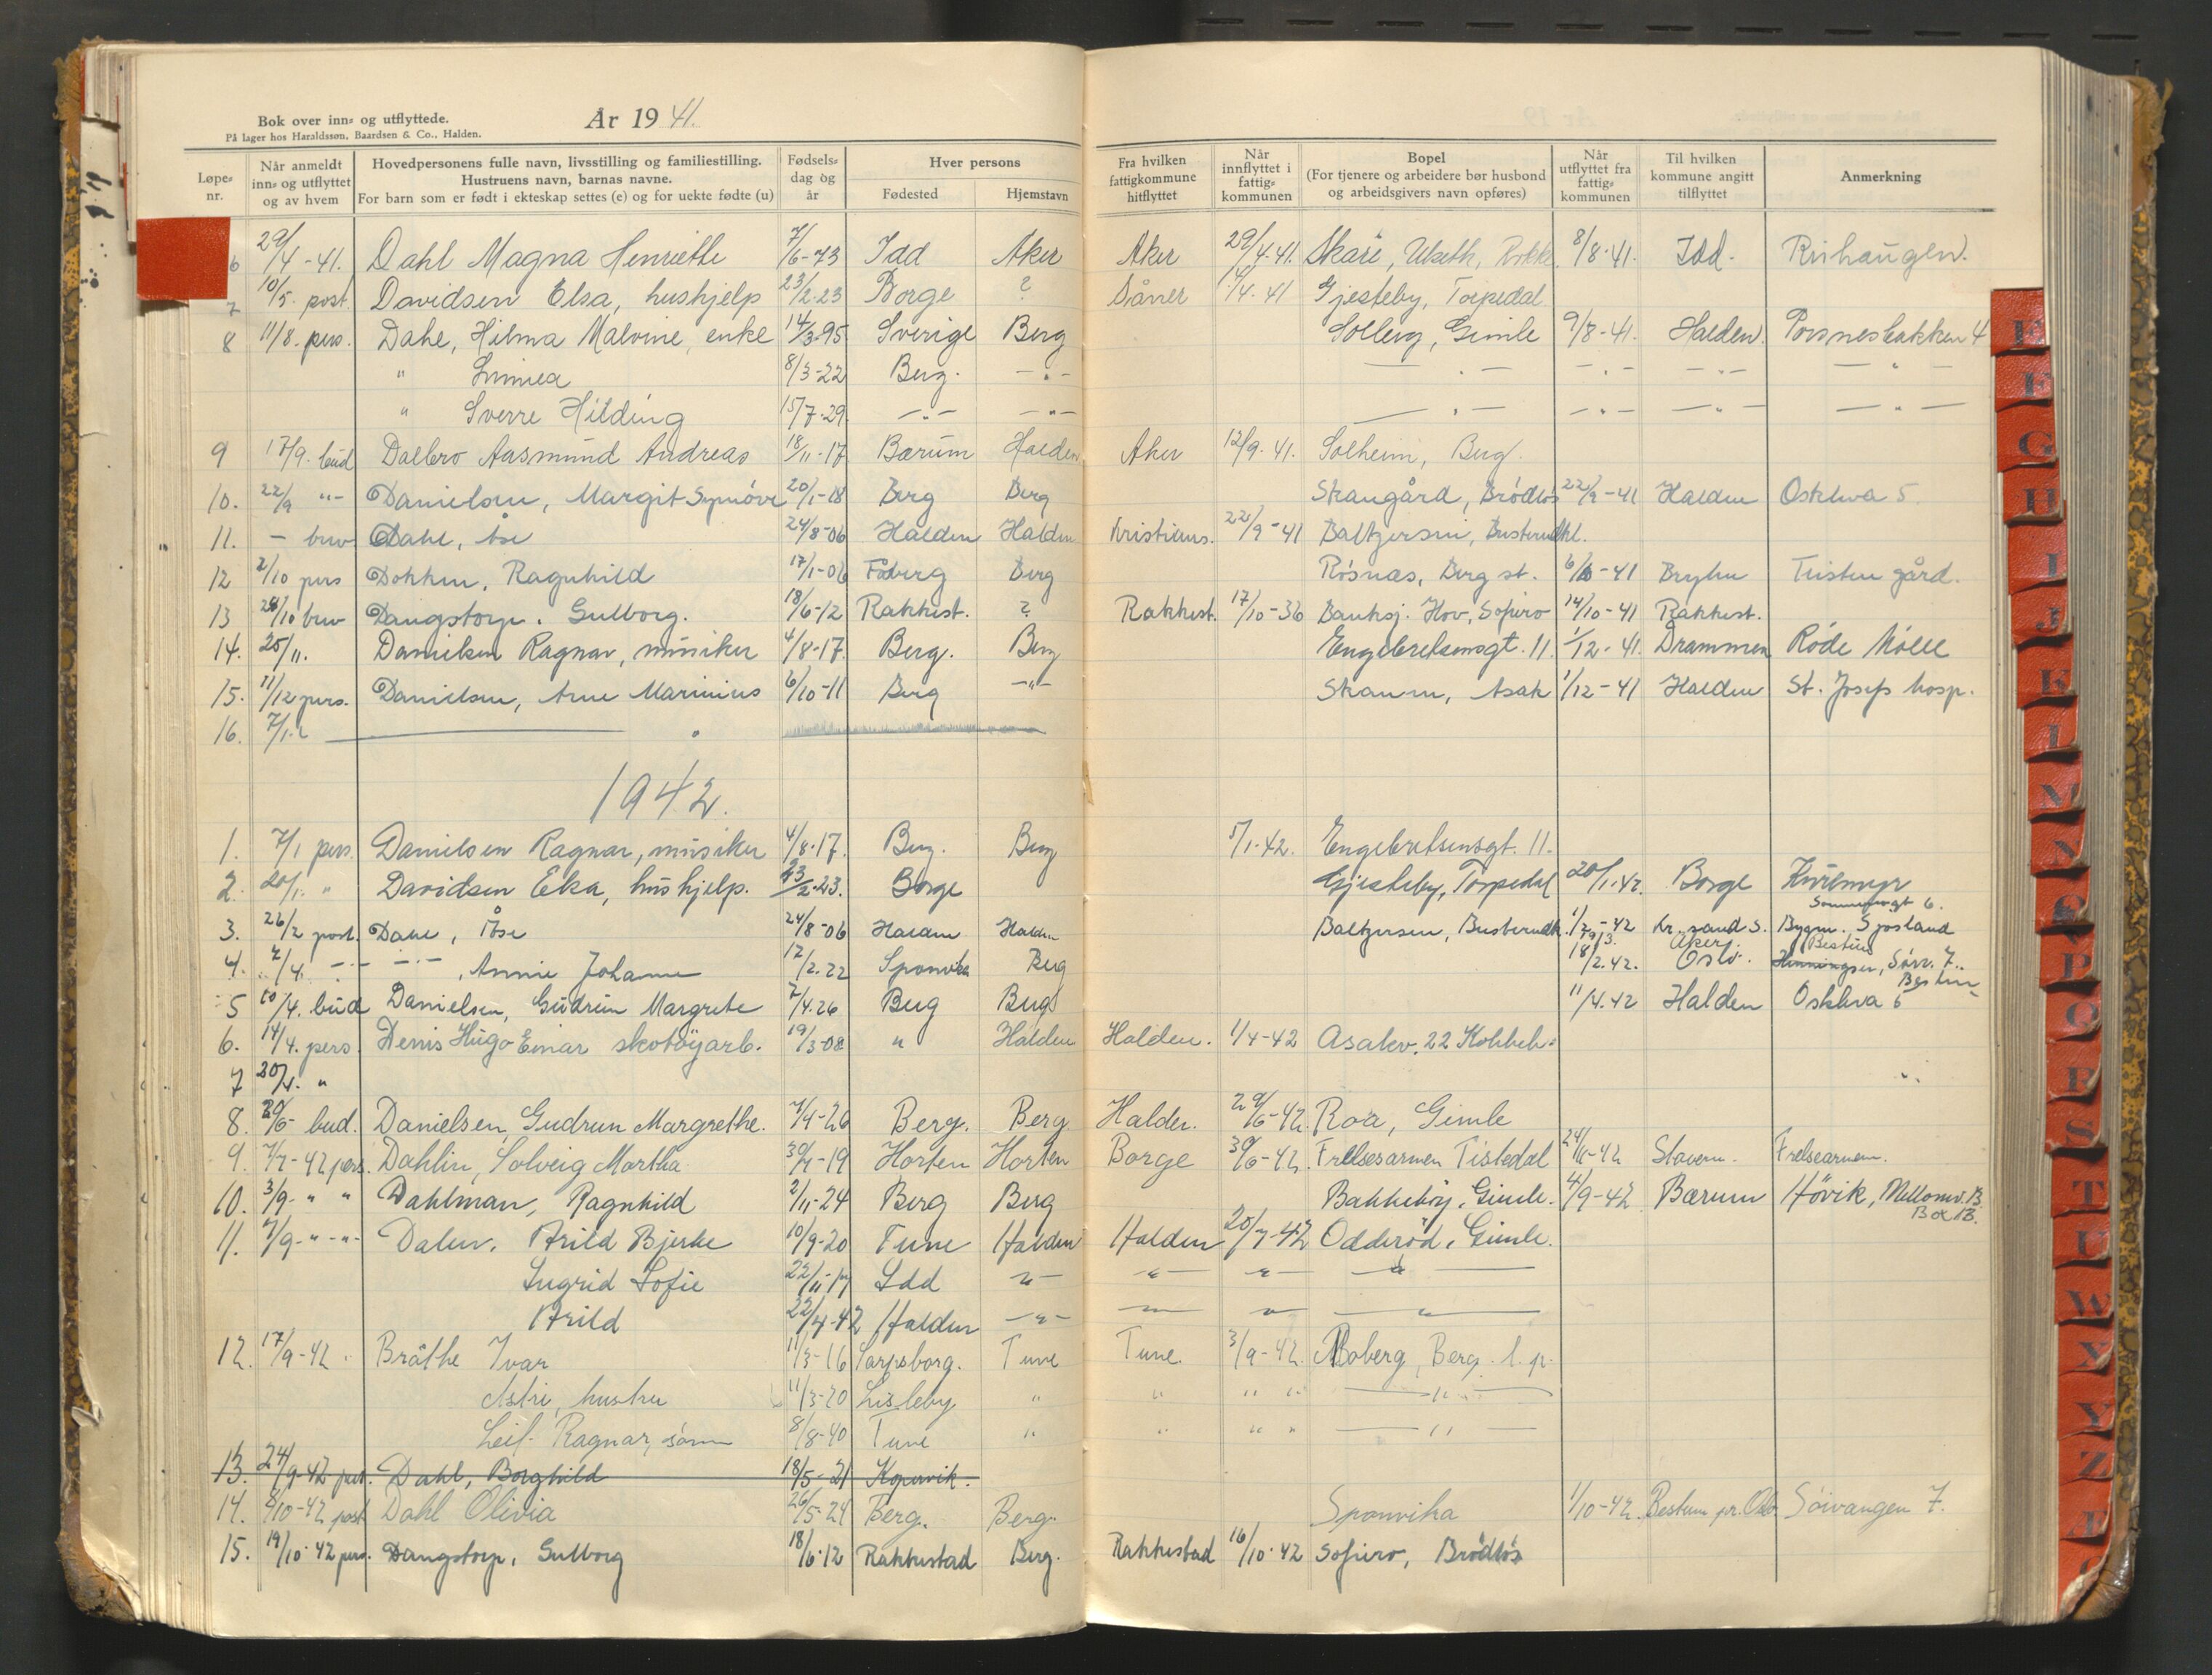 Bok over inn= og utflyttede.
På lager hos Haraldssøn, Baardsen & Co., Halden.
År 1941.
Løpe= nr.
Når anmeldt inn= og utflyttet og av hvem
Hovedpersonens fulle navn, livsstilling og familiestilling. Hustruens navn, barnas navne. For barn som er født i ekteskap settes (e) og for uekte fødte (u)
Fødsels= dag og år
Hver persons
Fødested
Hjemstavn
Fra hvilken fattigkommune hitflyttet
Når innflyttet i fattig= kommunen
Bopel (For tjenere og arbeidere bør husbond og arbeidsgivers navn opføres)
Når utflyttet fra fattig= kommunen
Til hvilken kommune angitt tilflyttet
Anmerkning
6 29/4-41. Dahl Magna Henriette 7/6-73 Idd Aker Aker 29/4.41. Skare, Ulseth, Rokke 8/8-41. Idd.
7 10/5. post. Davidsen Elsa, hushjelp 23/2.23 Borge ? Såner 1/4.41 Gjesteby, Torpedal
8 11/8. pers. Dahl, Hilma Malvine, enke 14/3-95 Sverige Berg Solberg, Gimle 9/8-41. Halden. Porsnesbakken 4
" Linnea 8/3-22 Berg. -"- -"- -"- -"- -"-
" Sverre Hilding 15/7.29. -"- -"- -"- -"- -"- -"-
9 17/9. bud Dalbro Aasmund Andreas 18/11-17 Bærum Halden Aker 12/9.41. Solheim, Berg.
10. 22/9 "- Danielsen, Margit Synnöve 20/1-18 Berg Berg Skaugård, Brödløs 22/9-41 Halden Oskleva 5
11. - brev Dahl, Åse 24/8-06 Halden Halden Kristians. 22/9-41 Baltzersen, Busterudkl.
12 2/10 pers Dokken, Ragnhild 17/1-06 Fåberg Berg Rösnæs, Berg st. 6/10-41 Tristen gård.
13 28/10 brev Dangstorp, Gulborg. 18/6-12 Rakkest. ? Rakkest. 17/10-36 Banksj. Hov, Sofiero 14/10-41 Rakkest.
14. 25/11. Danielsen Ragnar, musiker 4/8-17. Berg. Berg Engebretsensgt. 11. 1/12-41. Drammen Röde Mölle
15. 11/12 pers. Danielsen, Arne Marinius 6/10-11 Berg -"- Skaann, Asak 1/12-41 Halden St. Josefs hosp.
16. 7/1.
1942.
1. 7/1 pers. Danielsen Ragnar, musiker 4/8.17. Berg. Berg 5/1.42. Engebretsensgt. 11.
2. 20/1. " Davidsen Elsa, hushjelp. 23/2.23. Borge Gjesteby, Torpedal 20/1.42. Borge
3. 26/2 post. Dahl, Åse 24/8-06 Halden Halden Baltzersen, Busterudk. 1/2-42 Kr.sand S. Bygm. Sjösland
4. 7/4. -"- -"-, Annie Johanne 17/2.22 Sponvika Berg 18/2.42. Oslo. Aker. Bestum
5 10/4. bud Danielsen, Gudrun Margrete 7/4.26 Berg Berg 11/4.42 Halden Oskleva 5
6. 14/4. pers. Denis Hugo Einar skotöyarb. 19/3-08 " Halden Halden. 1/4-42 Asakv. 22 Kobbeh.
7 20/4. "
8. 29/6- bud. Danielsen, Gudrun Margrethe. 7/4-26 Berg. Berg Halden. 29/6-42. Roa, Gimle
9. 7/7-42 pers. Dahlin, Solveig Martha 30/4-19 Horten Horten Borge 30/6-42. Frelsesarmen Tistedal 24/11-42 Stavern. Frelsearmen.
10. 3/9- " " Dahlman, Ragnhild 2/11-24 Berg Berg Bakkehöy, Gimle. 4/9-42 Bærum Hövik, Mellomv. B.
Box 13.
11. 7/9- "-"- Dalen, Arild Bjerke 10/9-20 Tune Halden Halden 20/7-42 Odderöd, Gimle.
Ingrid Sofie 22/11-19 Idd -"- -"- -"- -"-
Arild 22/4-42 Halden -"- -"- -"- -"-
12. 17/9-42. Bråthe Ivar 11/3-16 Sarpsborg. Tune Tune. 3/9-42. Moberg, Berg l. p.
Astri, hustru 11/3-20 Lisleby " " " " -"-
Leif Ragnar, sönn 8/8-40 Tune " " " " -"-
13. 24/9-42 pers. Dahl, Borghild 18/5-21 Kopervik.
14. 8/10-42 post Dahl Olivia 26/5-24 Berg. Berg. Sponvika 1/10-42. Bestum pr. Oslo Sörvangen 7.
15. 19/10.42 pers. Dangstorp, Gulborg 18/6-12 Rakkestad Berg. Rakkestad 16/10.42 Sofiero, Brödløs
E
F
G
H
I
J
K
L
M
N
O
P
Q
R
S
T
U
W
X
Y
Z
Æ